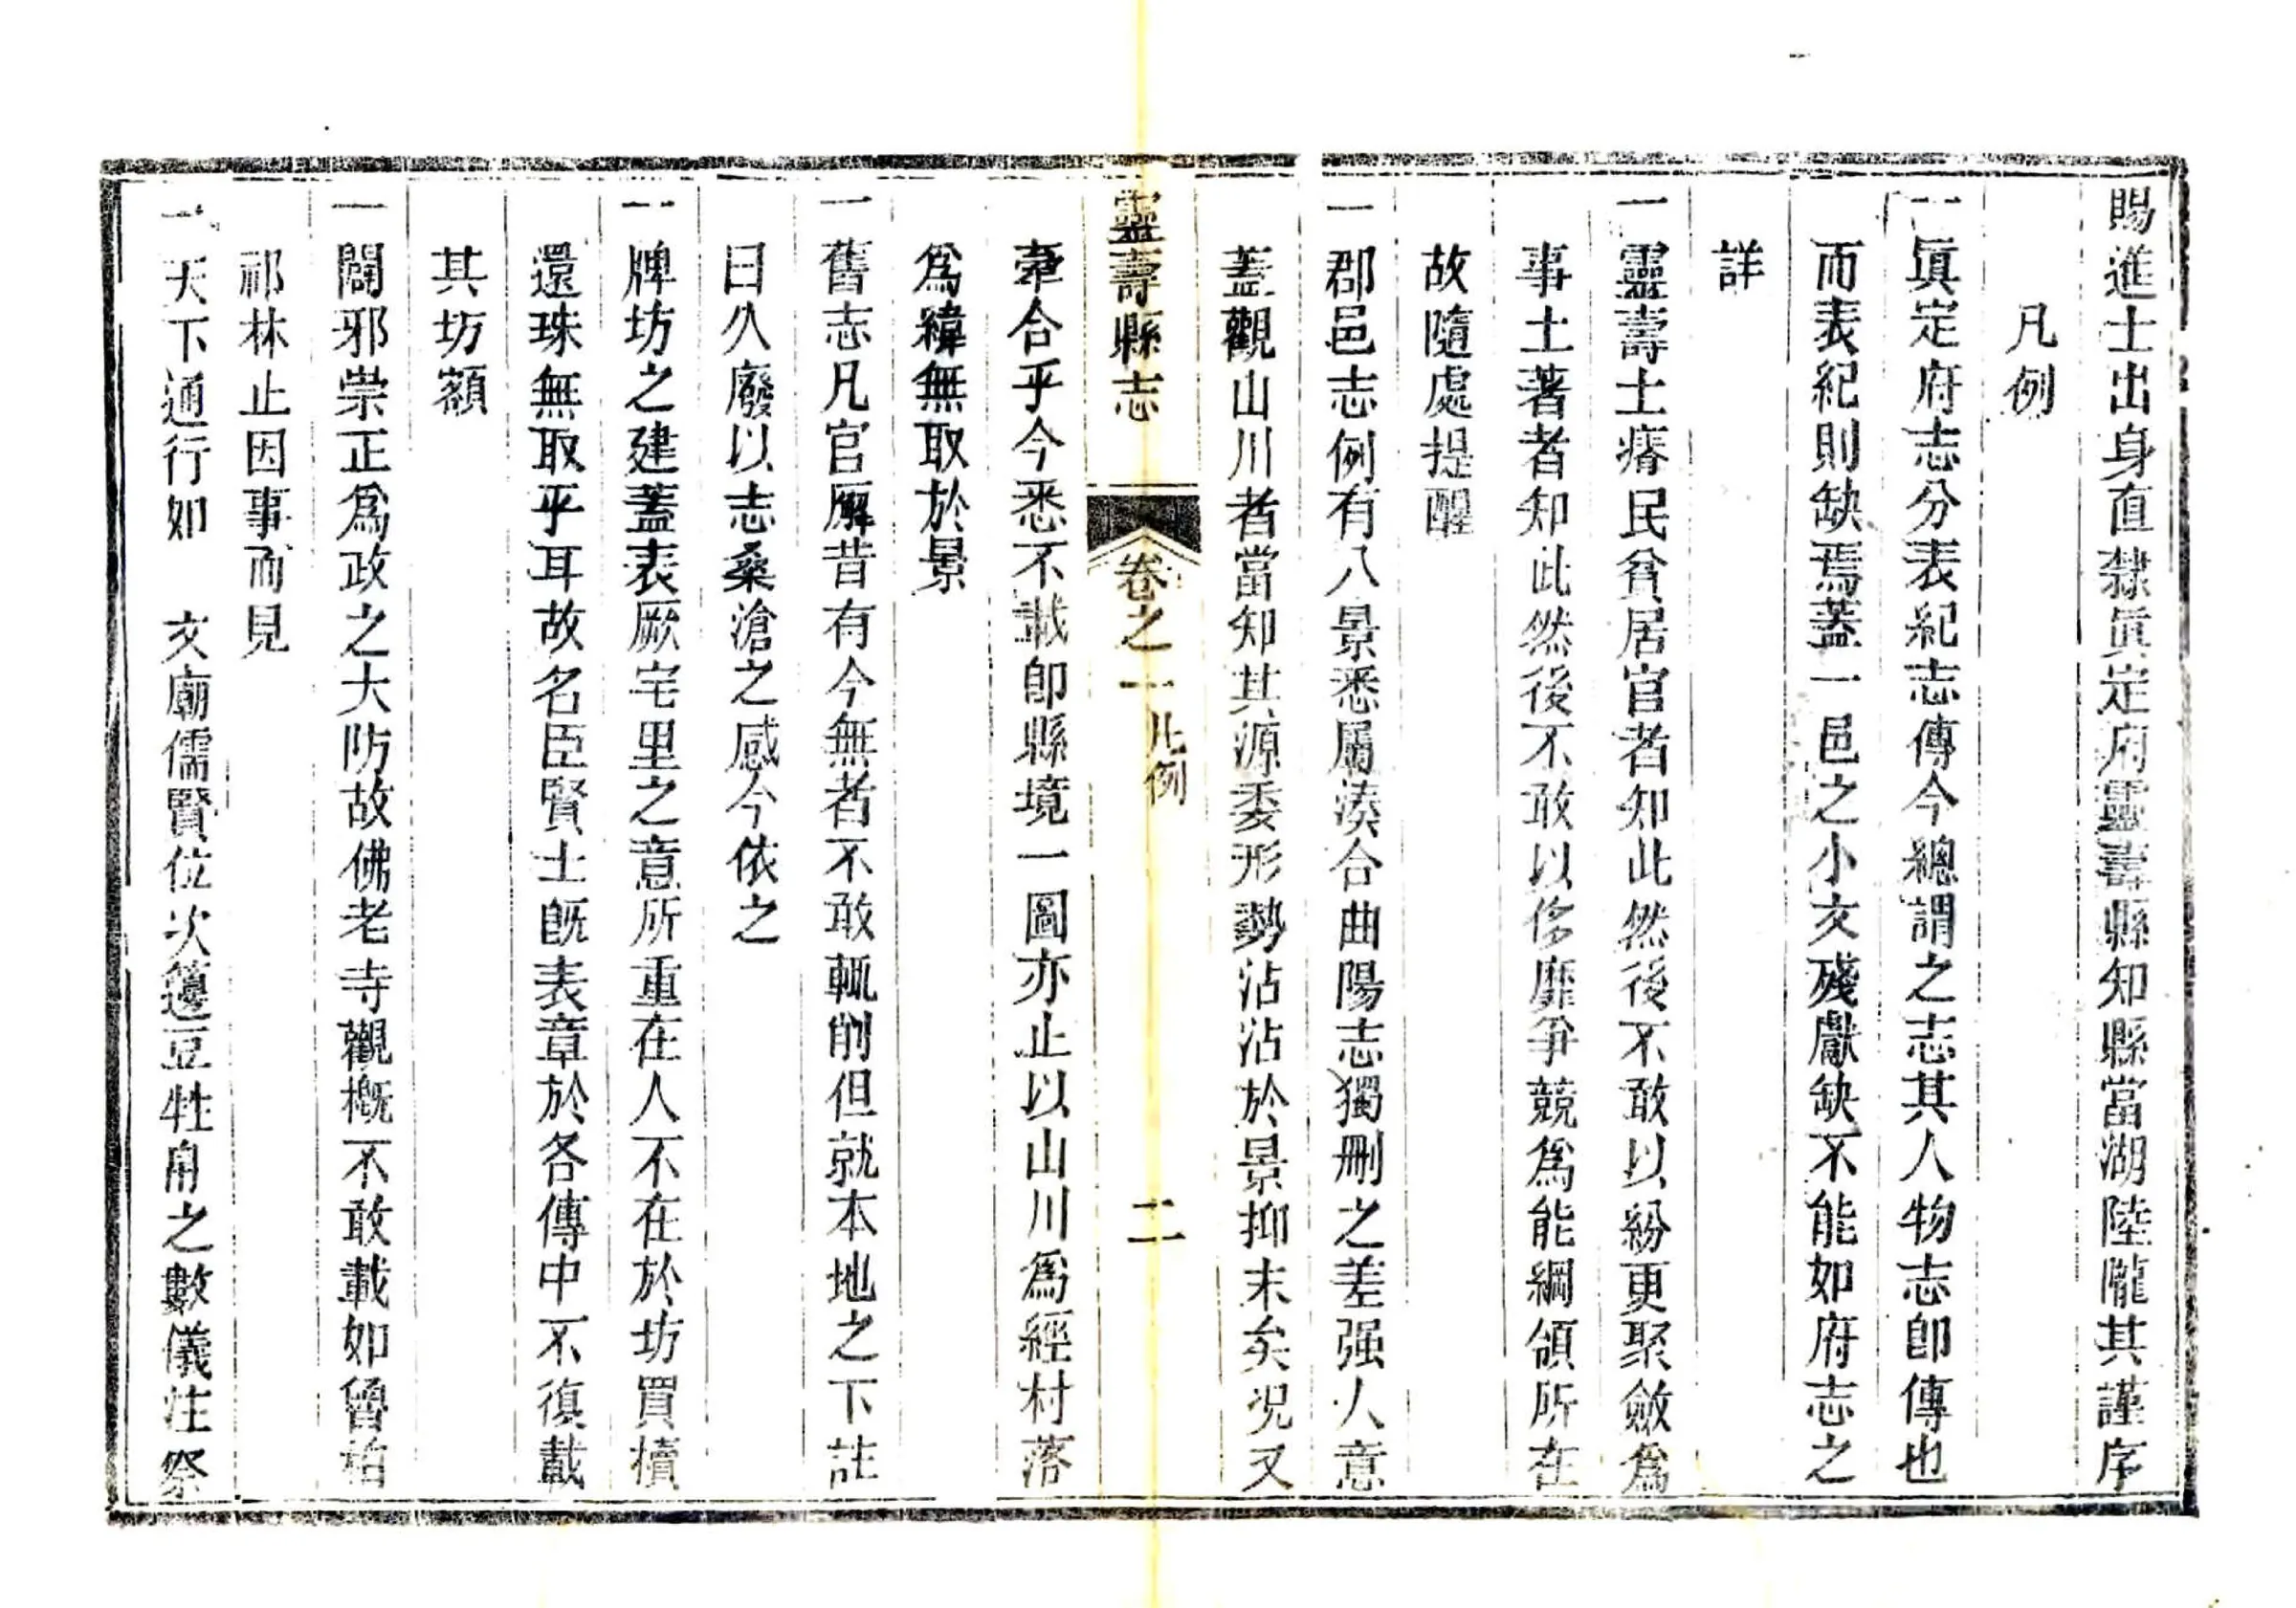 賜進士出身直隸眞定府靈壽縣知縣當湖陸隴其謹序
凡例
一眞定府志分表紀志傳今總謂之志其人物志卽傳也
而表紀則缺焉蓋一邑之小文殘獻缺不能如府志之
詳
一靈壽土瘠民貧居官者知此然後不敢以紛更聚斂爲
事土著者知此然後不敢以侈靡爭競爲能綱領所在
故隨處提醒
一郡邑志例有八景悉屬湊合曲陽志獨刪之差强人意
蓋觀山川者當知其源委形勢沾沾於景抑末矣况又
牽合乎今悉不載卽縣境一圖亦止以山川爲經村落
爲緯無取於景
靈壽縣志
卷之一
凡例
二
一舊志凡官廨昔有今無者不敢輒削但就本地之下註
曰久廢以志桑滄之感今依之
一牌坊之建蓋表厥宅里之意所重在人不在於坊買櫝
還珠無取乎耳故名臣賢士旣表章於各傳中不復載
其坊額
一闢邪崇正爲政之大防故佛老寺觀槪不敢載如魯柏
祁林止因事而見
一天下通行如 文廟儒賢位次籩豆牲帛之數儀注祭